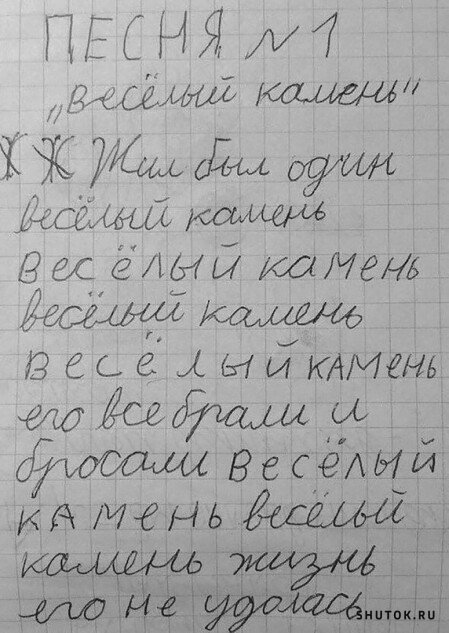 ПЕСНЯ N1
„весёлый камень"
Ж Ж Жил был один
весёлый камень
весёлый камень
весёлый камень
весёлый камень
его все брали и
бросали весёлый
камень весёлый
камень жизнь
его не удолась
SHUTOK.RU